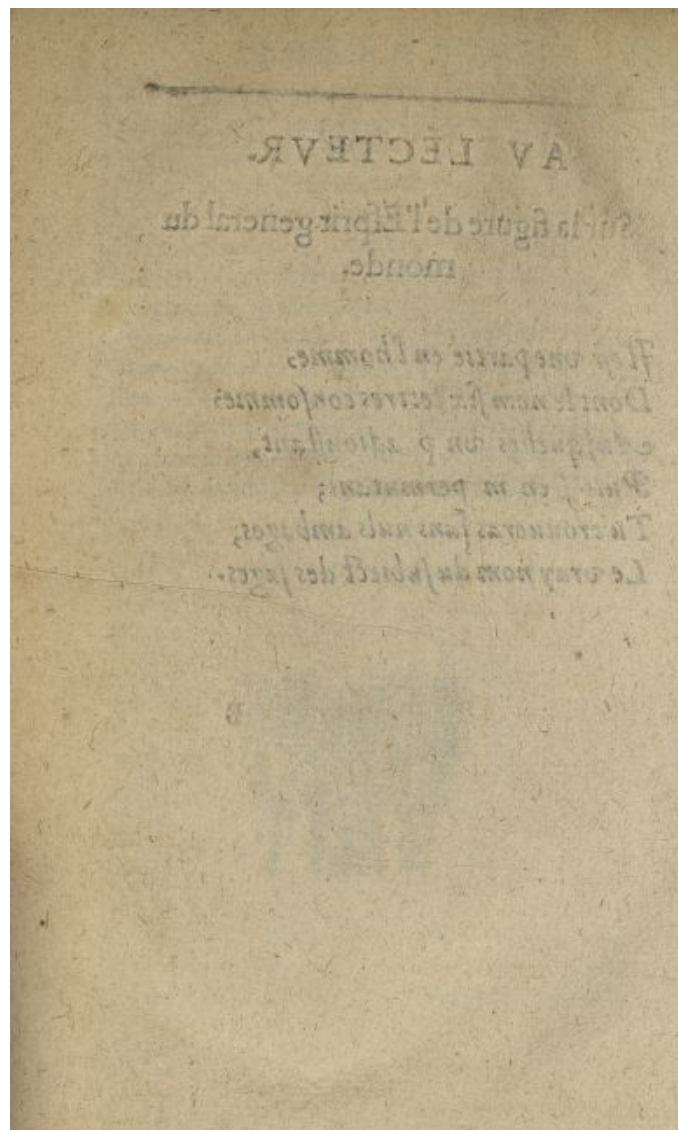 AV LECTEVR.
Sur la figure de l'Esprit general du
monde.
Il est vne partie en l'homme,
Dont le nom six lettres consomme;
Ausquelles vn p adioustant,
Puis l's en m permutant;
Tu trouueras sans nuls ambages,
Le vray nom du subiect des sages.
B